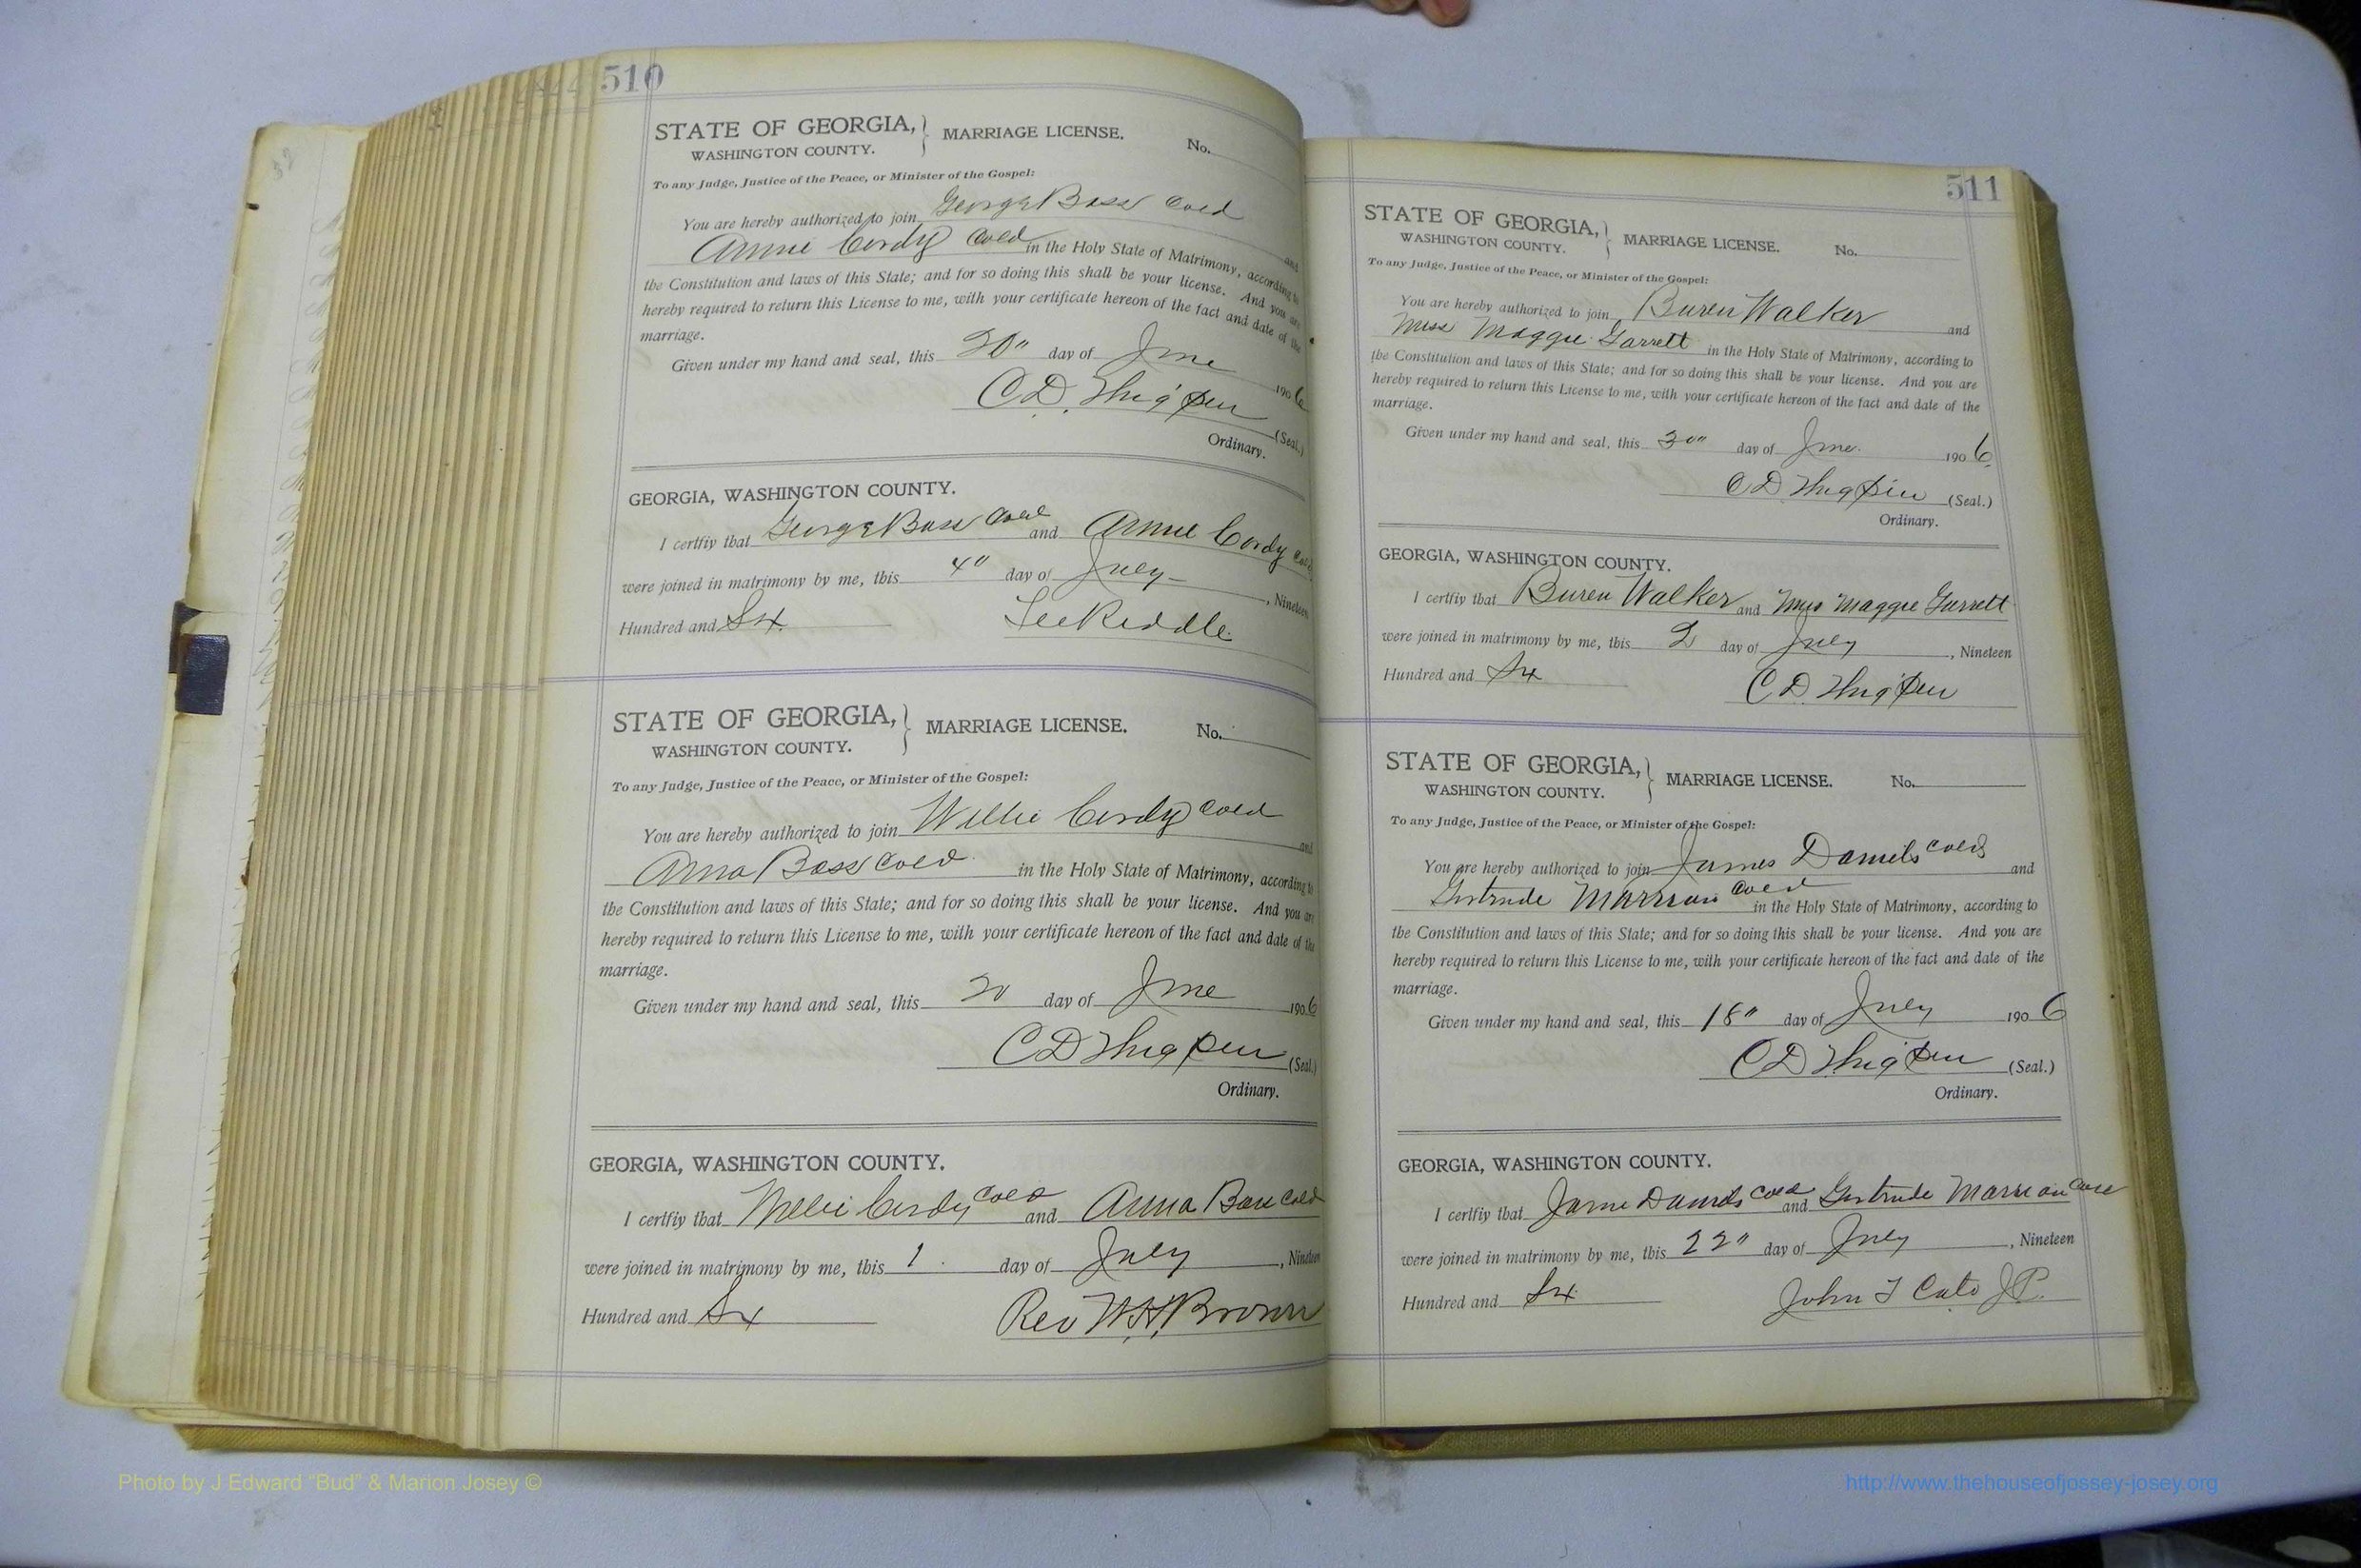 510
STATE OF GEORGIA, } MARRIAGE LICENSE. No.
WASHINGTON COUNTY.
To any Judge, Justice of the Peace, or Minister of the Gospel:
You are hereby authorized to join George Bass Cold and
Annie Cordy Cold in the Holy State of Matrimony, according to
the Constitution and laws of this State; and for so doing this shall be your license. And you are
hereby required to return this License to me, with your certificate hereon of the fact and date of the
marriage.
Given under my hand and seal, this 30" day of June 1906
C D. Thigpen (Seal.)
Ordinary.
GEORGIA, WASHINGTON COUNTY.
I certfiy that George Bass Cold and Annie Cordy Cold
were joined in matrimony by me, this 4" day of July , Nineteen
Hundred and Six Lee Riddle
STATE OF GEORGIA, } MARRIAGE LICENSE. No.
WASHINGTON COUNTY.
To any Judge, Justice of the Peace, or Minister of the Gospel:
You are hereby authorized to join Willie Cordy Cold and
Anna Bass Cold in the Holy State of Matrimony, according to
the Constitution and laws of this State; and for so doing this shall be your license. And you are
hereby required to return this License to me, with your certificate hereon of the fact and date of the
marriage.
Given under my hand and seal, this 30 day of June 1906
C D Thigpen (Seal.)
Ordinary.
GEORGIA, WASHINGTON COUNTY.
I certfiy that Willie Cordy Cold and Anna Bass Cold
were joined in matrimony by me, this 1 day of July , Nineteen
Hundred and Six Rev W.H. Brown
511
STATE OF GEORGIA, } MARRIAGE LICENSE. No.
WASHINGTON COUNTY.
To any Judge, Justice of the Peace, or Minister of the Gospel:
You are hereby authorized to join Buren Walker and
Miss Maggie Garrett in the Holy State of Matrimony, according to
the Constitution and laws of this State; and for so doing this shall be your license. And you are
hereby required to return this License to me, with your certificate hereon of the fact and date of the
marriage.
Given under my hand and seal, this 30" day of June 1906
C D Thigpen (Seal.)
Ordinary.
GEORGIA, WASHINGTON COUNTY.
I certfiy that Buren Walker and Miss Maggie Garrett
were joined in matrimony by me, this 2 day of July , Nineteen
Hundred and Six C D. Thigpen
STATE OF GEORGIA, } MARRIAGE LICENSE. No.
WASHINGTON COUNTY.
To any Judge, Justice of the Peace, or Minister of the Gospel:
You are hereby authorized to join James Daniels Cold and
Gertrude Cold in the Holy State of Matrimony, according to
the Constitution and laws of this State; and for so doing this shall be your license. And you are
hereby required to return this License to me, with your certificate hereon of the fact and date of the
marriage.
Given under my hand and seal, this 18" day of July 1906
C D Thigpen (Seal.)
Ordinary.
GEORGIA, WASHINGTON COUNTY.
I certfiy that Daniels Cold and Gertrude Cold
were joined in matrimony by me, this 22" day of July , Nineteen
Hundred and Six John T Cato J.P.
Photo by J Edward "Bud" & Marion Josey ©
http://www.thehouseofjossey-josey.org